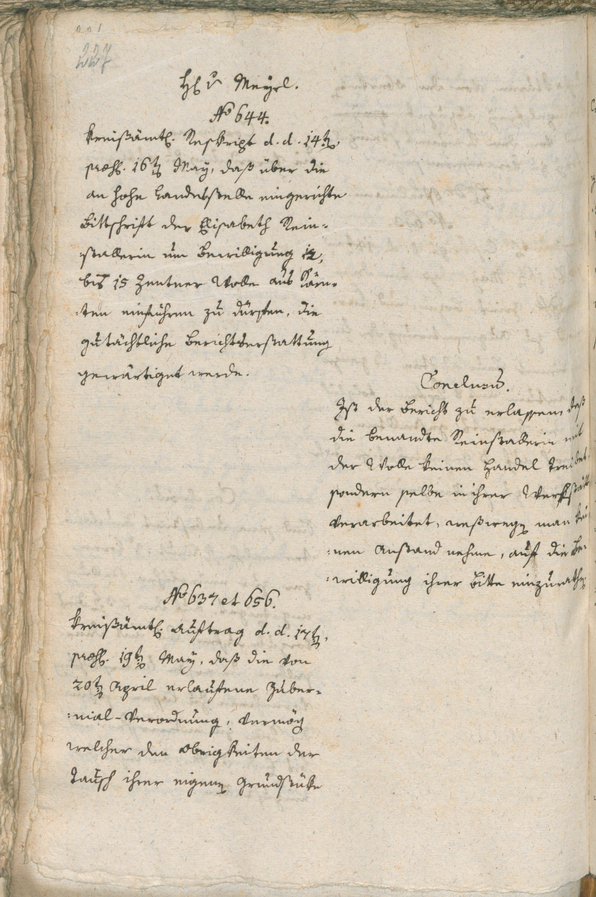 221
H: v Meyrl.
No 644.
Kreißämtl. Reskript d. d. 14tn,
praes. 16tn May, daß über die
an hohe Landesstelle eingerichte
Bittschrift der Elisabeth Rein-
stallerin um Bewilligung 12,
bis 15 Zentner Wolle aus Kärn-
:ten einführen zu dürfen, die
gutächtliche Berichtserstattung
gewärtiget werde.
Conclusum.
Ist der Bericht zu erlassen, daß
die benandte Reinstallerin mit
der Wolle keinen Handel treibet,
sondern selbe in ihrer Werkstatt
verarbeitet, weßwegen man kei
:nen Anstand nehme, auf die Be-
:willigung ihrer Bitte einzurathen
No 637 et 656.
Kreißämtl. Auftrag d. d. 17tn,
praes. 19tn May, daß die von
20tn April erlaufene Guber-
:nial-Verordnung, vermög
welcher den Obrigkeiten der
Tausch ihrer eigenen Grundstüke